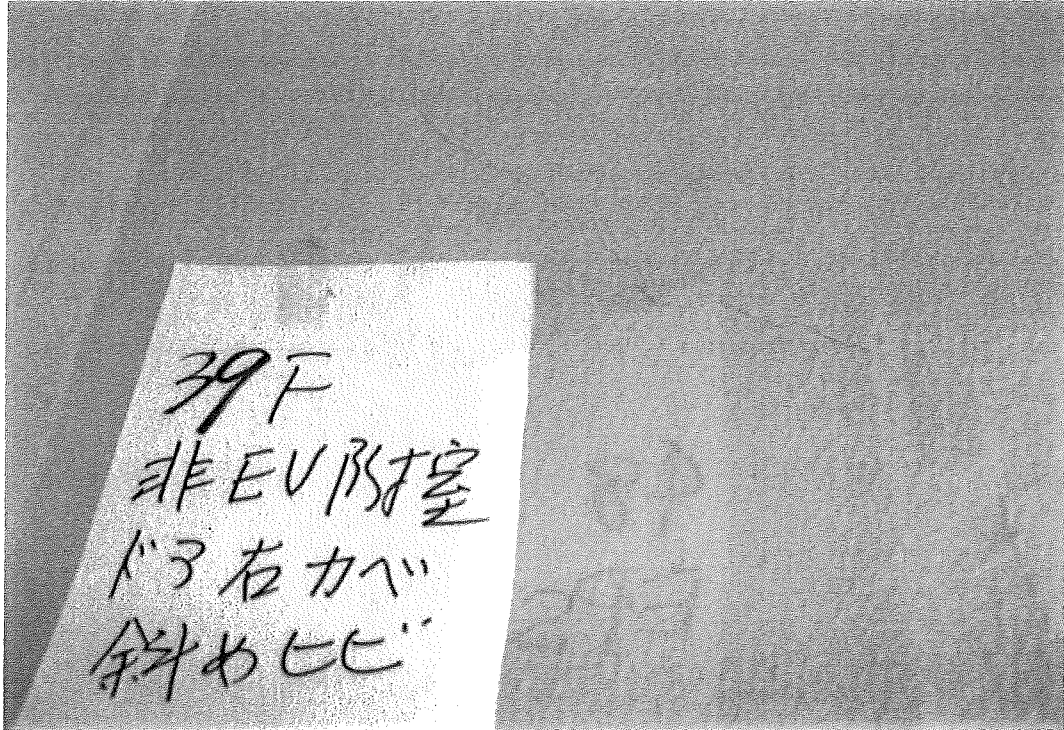 39F
非EV附室
ドア右カベ
斜めヒビ